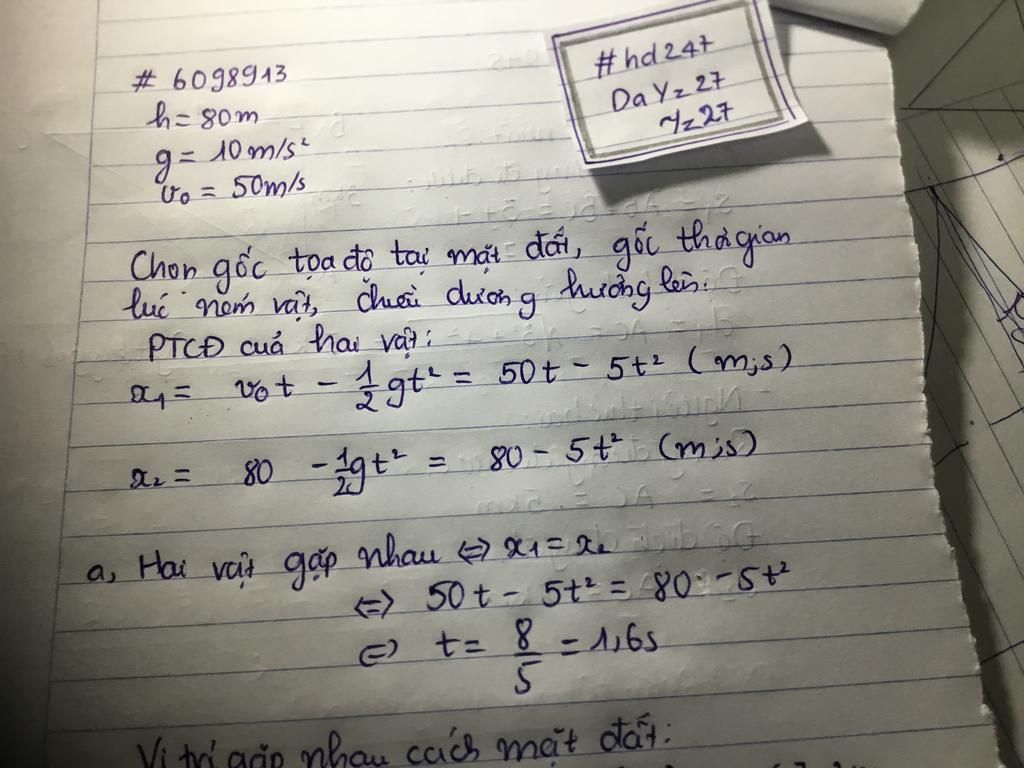 # 6098913
h = 80m
g = 10m/s²
v₀ = 50m/s
#hd247
DaYz27
Yz27
Chọn gốc tọa độ tại mặt đất, gốc thời gian
lúc ném vật, chiều dương hướng lên.
PTCĐ của hai vật:
x₁ = v₀t - 1/2 gt² = 50t - 5t² (m;s)
x₂ = 80 - 1/2 gt² = 80 - 5t² (m;s)
a, Hai vật gặp nhau ⇔ x₁ = x₂
⇔ 50t - 5t² = 80 - 5t²
⇔ t = 8/5 = 1,6s
Vị trí gặp nhau cách mặt đất: